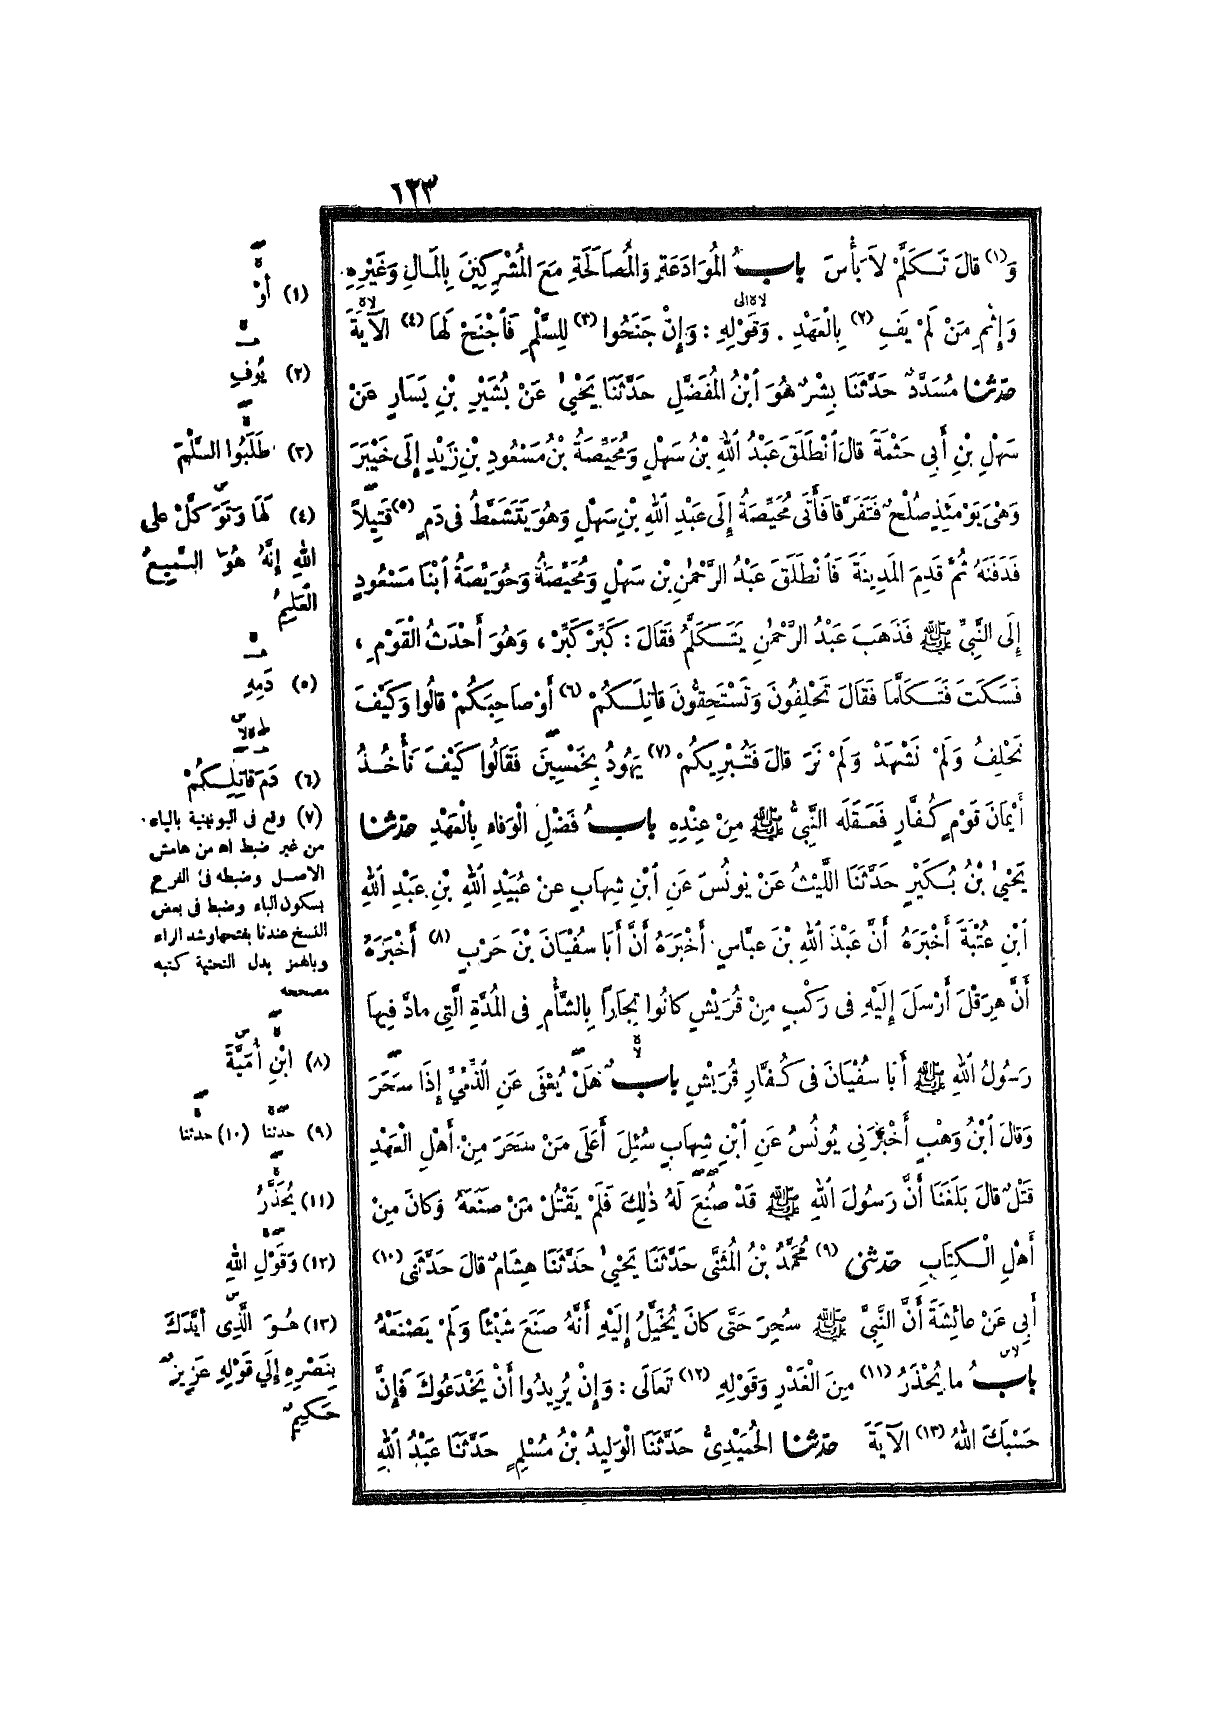 ١٢٣
وَ (١) قالَ تَكَلَّمْ لاَ بَأْسَ بابُ الْمُوَادَعَةِ وَالْمُصَالَحَةِ مَعَ الْمُشْرِكِينَ بِالْمَالِ وَغَيْرِهِ
وَإِثْمِ مَنْ لَمْ يَفِ (٢) بِالْعَهْدِ . وَقَوْلِهِ : وَإِنْ جَنَحُوا (٣) لِلسَّلْمِ فَاجْنَحْ لَهَا (٤) الآيَةَ
حدثنا مُسَدَّدٌ حَدَّثَنَا بِشْرٌ هُوَ ابْنُ الْمُفَضَّلِ حَدَّثَنَا يَحْيَى عَنْ بُشَيْرِ بْنِ يَسَارٍ عَنْ
سَهْلِ بْنِ أَبِي حَثْمَةَ قالَ انْطَلَقَ عَبْدُ اللهِ بْنُ سَهْلٍ وَمُحَيِّصَةُ بْنُ مَسْعُودِ بْنِ زَيْدٍ إِلَى خَيْبَرَ
وَهْيَ يَوْمَئِذٍ صُلْحٌ فَتَفَرَّقا فَأَتَى مُحَيِّصَةُ إِلَى عَبْدِ اللهِ بْنِ سَهْلٍ وَهُوَ يَتَشَحَّطُ فِي دَمٍ (٥) قَتِيلاً
فَدَفَنَهُ ثُمَّ قَدِمَ الْمَدِينَةَ فَانْطَلَقَ عَبْدُ الرَّحْمٰنِ بْنُ سَهْلٍ وَمُحَيِّصَةُ وَحُوَيِّصَةُ ابْنَا مَسْعُودٍ
إِلَى النَّبِيِّ ﷺ فَذَهَبَ عَبْدُ الرَّحْمٰنِ يَتَكَلَّمُ فَقَالَ : كَبِّرْ كَبِّرْ ، وَهُوَ أَحْدَثُ الْقَوْمِ ،
فَسَكَتَ فَتَكَلَّمَا فَقَالَ تَحْلِفُونَ وَتَسْتَحِقُّونَ قاتِلَكُمْ (٦) أَوْ صَاحِبَكُمْ قالُوا وَكَيْفَ
نَحْلِفُ وَلَمْ نَشْهَدْ وَلَمْ نَرَ قالَ فَتُبْرِيكُمْ (٧) يَهُودُ بِخَمْسِينَ فَقَالُوا كَيْفَ نَأْخُذُ
أَيْمَانَ قَوْمٍ كُفَّارٍ فَعَقَلَه النَّبِيُّ ﷺ مِنْ عِنْدِهِ بابُ فَضْلِ الْوَفَاءِ بِالْعَهْدِ حدثنا
يَحْيَى بْنُ بُكَيْرٍ حَدَّثَنَا اللَّيْثُ عَنْ يُونُسَ عَنِ ابْنِ شِهَابٍ عَنْ عُبَيْدِ اللهِ بْنِ عَبْدِ اللهِ
ابْنِ عُتْبَةَ أَخْبَرَهُ أَنَّ عَبْدَ اللهِ بْنَ عَبَّاسٍ أَخْبَرَهُ أَنَّ أَبَا سُفْيَانَ بْنَ حَرْبٍ (٨) أَخْبَرَهُ
أَنَّ هِرَقْلَ أَرْسَلَ إِلَيْهِ فِي رَكْبٍ مِنْ قُرَيْشٍ كَانُوا تِجَاراً بِالشَّأْمِ فِي الْمُدَّةِ الَّتِي مادَّ فِيهَا
رَسُولُ اللهِ ﷺ أَبَا سُفْيَانَ فِي كُفَّارِ قُرَيْشٍ بابٌ هَلْ يُعْفَى عَنِ الذِّمِّيِّ إِذَا سَحَرَ
وَقالَ ابْنُ وَهْبٍ أَخْبَرَنِي يُونُسُ عَنِ ابْنِ شِهَابٍ سُئِلَ أَعَلَى مَنْ سَحَرَ مِنْ أَهْلِ الْعَهْدِ
قَتْلٌ قالَ بَلَغَنَا أَنَّ رَسُولَ اللهِ ﷺ قَدْ صُنِعَ لَهُ ذٰلِكَ فَلَمْ يَقْتُلْ مَنْ صَنَعَهُ وَكانَ مِنْ
أَهْلِ الْكِتَابِ حدثني (٩) مُحَمَّدُ بْنُ الْمُثَنَّى حَدَّثَنَا يَحْيَى حَدَّثَنَا هِشَامٌ قالَ حَدَّثَنِي (١٠)
أَبِي عَنْ عائِشَةَ أَنَّ النَّبِيَّ ﷺ سُحِرَ حَتَّى كانَ يُخَيَّلُ إِلَيْهِ أَنَّهُ صَنَعَ شَيْئاً وَلَمْ يَصْنَعْهُ
بابُ ما يُحْذَرُ (١١) مِنَ الْغَدْرِ وَقَوْلِهِ (١٢) تَعَالَى : وَإِنْ يُرِيدُوا أَنْ يَخْدَعُوكَ فَإِنَّ
حَسْبَكَ اللهُ (١٣) الآيَةَ حدثنا الْحُمَيْدِيُّ حَدَّثَنَا الْوَلِيدُ بْنُ مُسْلِمٍ حَدَّثَنَا عَبْدُ اللهِ
(١) أَوْ
(٢) يُوفِ
(٣) طَلَبُوا السَّلْمَ
(٤) لَهَا وَتَوَكَّلْ على
اللهِ إِنَّهُ هُوَ السَّمِيعُ
الْعَلِيمُ
(٥) دَمِهِ
(٦) دَمَ قاتِلِكُمْ
(٧) وقع فى اليونينية بالياء
من غير ضبط اه من هامش
الاصل وضبطه فى الفرع
بسكون الباء وضبط فى بعض
النسخ عندنا بفتحها وشد الراء
وبالهمز بدل التحتية كتبه
مصححه
(٨) ابْنِ أُمَيَّةَ
(٩) حدثنا (١٠) حدثنا
(١١) يُحَذَّرُ
(١٢) وَقَوْلِ اللهِ
(١٣) هُوَ الَّذِي أَيَّدَكَ
بِنَصْرِهِ إِلَى قَوْلِهِ عَزِيزٌ
حَكِيمٌ